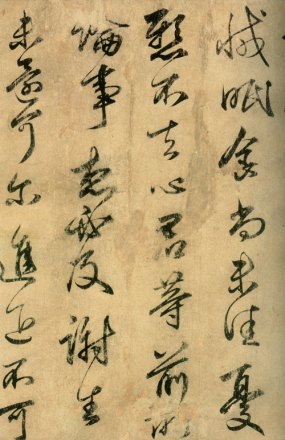 減眠食尚未佳憂
懸不去心君等前所
論事想必及謝生
未還可爾進退不可